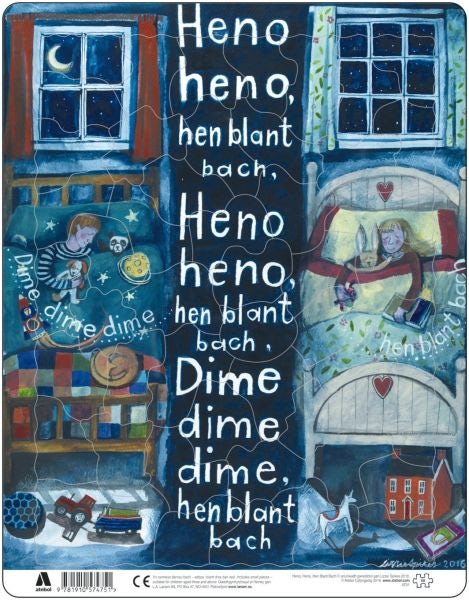 Heno
heno,
hen blant
bach,
Heno
heno,
hen blant
bach,
Dime
dime
dime,
hen blant
bach
Dime dime dime...
hen blant bach
atebol
9 781910 574751
CE
2016